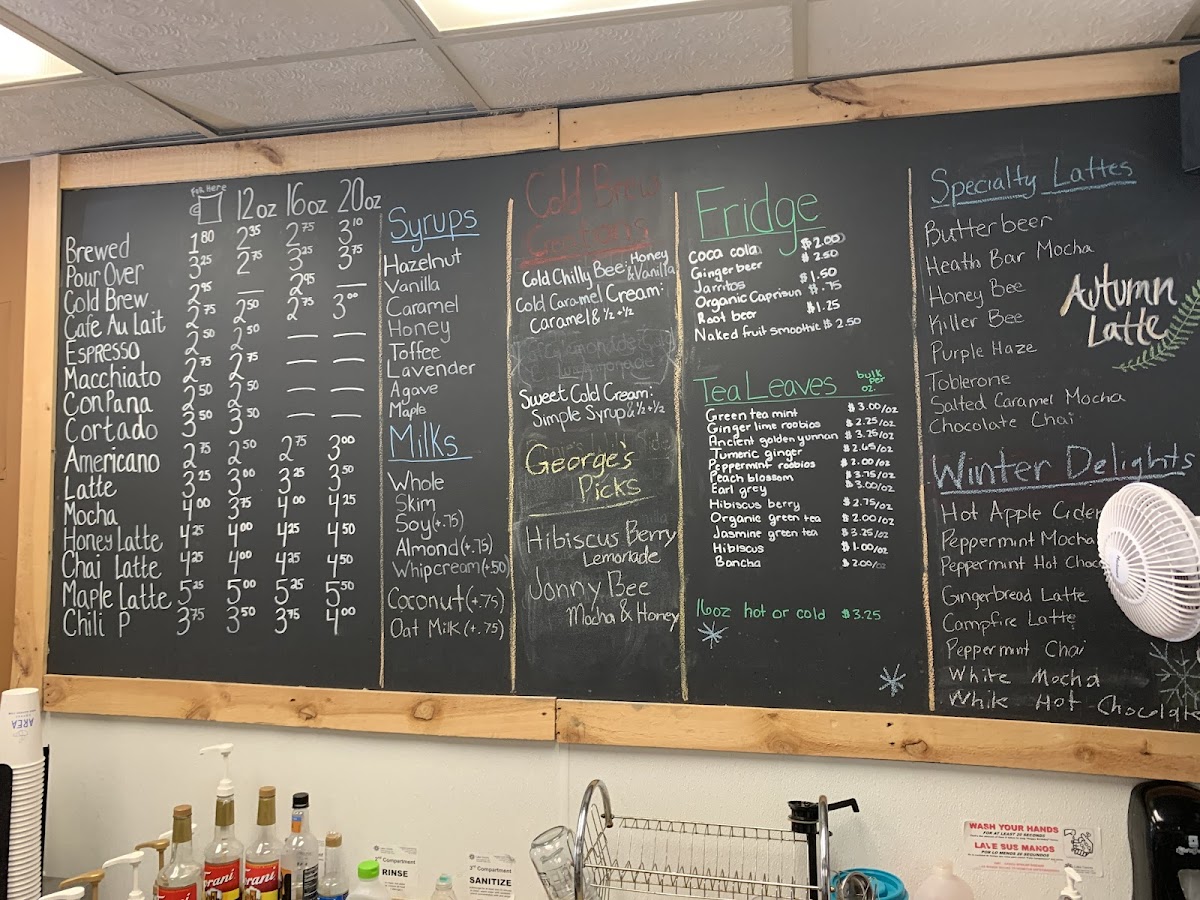 FOR HERE 12oz 16oz 20oz
Brewed 1 80 2 35 2 75 3 10
Pour Over 3 25 2 75 3 25 3 75
Cold Brew 2 95 — 2 95 —
Cafe Au Lait 2 75 2 50 2 75 3 00
Espresso 2 50 2 50 — —
Macchiato 2 75 2 75 — —
Con Pana 2 50 2 50 — —
Cortado 3 50 3 50 — —
Americano 2 75 2 50 2 75 3 00
Latte 3 25 3 00 3 25 3 50
Mocha 4 00 3 75 4 00 4 25
Honey Latte 4 25 4 00 4 25 4 50
Chai Latte 4 25 4 00 4 25 4 50
Maple Latte 5 25 5 00 5 25 5 50
Chili P 3 75 3 50 3 75 4 00
Syrups
Hazelnut
Vanilla
Caramel
Honey
Toffee
Lavender
Agave
Maple
Milks
Whole
Skim
Soy (+.75)
Almond (+.75)
Whipcream (+.50)
Coconut (+.75)
Oat Milk (+.75)
Cold Brew
Creations
Cold Chilly Bee: Honey
& Vanilla
Cold Caramel Cream:
Caramel & 1/2 + 1/2
Sweet Cold Cream:
Simple Syrup & 1/2 + 1/2
George's
Picks
Hibiscus Berry
Lemonade
Jonny Bee
Mocha & Honey
Fridge
coca cola $2.00
Ginger beer $2.50
Jarritos $1.50
Organic Caprisun $.75
Root beer $1.25
Naked fruit smoothie $2.50
Tea Leaves bulk
per
oz.
Green tea mint $3.00/oz
Ginger lime rooibos $2.25/oz
Ancient golden yunnan $3.25/oz
Tumeric ginger $2.65/oz
Peppermint rooibos $2.00/oz
Peach blossom $3.75/oz
Earl grey $3.00/oz
Hibiscus berry $2.75/oz
Organic green tea $2.00/oz
Jasmine green tea $3.25/oz
Hibiscus $1.00/oz
Bancha $2.00/oz
16oz hot or cold $3.25
Specialty Lattes
Butterbeer
Heath Bar Mocha
Honey Bee
Killer Bee
Purple Haze
Toblerone
Salted Caramel Mocha
Chocolate Chai
Autumn
Latte
Winter Delights
Hot Apple Cider
Peppermint Mocha
Peppermint Hot Choc
Gingerbread Latte
Campfire Latte
Peppermint Chai
White Mocha
White Hot Chocolate
AREA
Torani
Torani
Compartment
RINSE
3rd Compartment
SANITIZE
WASH YOUR HANDS
FOR AT LEAST 20 SECONDS
LAVE SUS MANOS
POR LO MENOS 20 SEGUNDOS